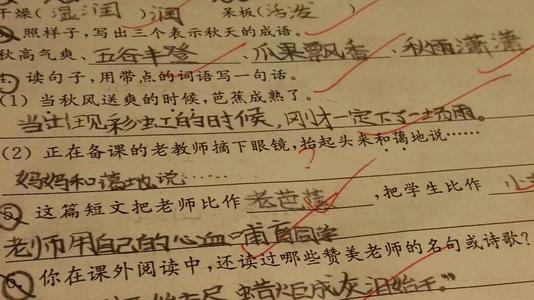 干燥(湿润)润 呆板(活泼)
照样子,写出三个表示秋天的成语。
秋高气爽、五谷丰登、瓜果飘香、秋雨潇潇
4、读句子,用带点的词语写一句话。
(1) 当秋风送爽的时候,芭蕉成熟了。
当出现彩虹的时候,刚才一定下了一场雨。
(2) 正在备课的老教师摘下眼镜,抬起头来和蔼地说……
妈妈和蔼地说……
5、这篇短文把老师比作老芭蕉,把学生比作小
老师用自己的心血哺育同学
6、你在课外阅读中,还读过哪些赞美老师的名句或诗歌?
蜡炬成灰泪始干。”